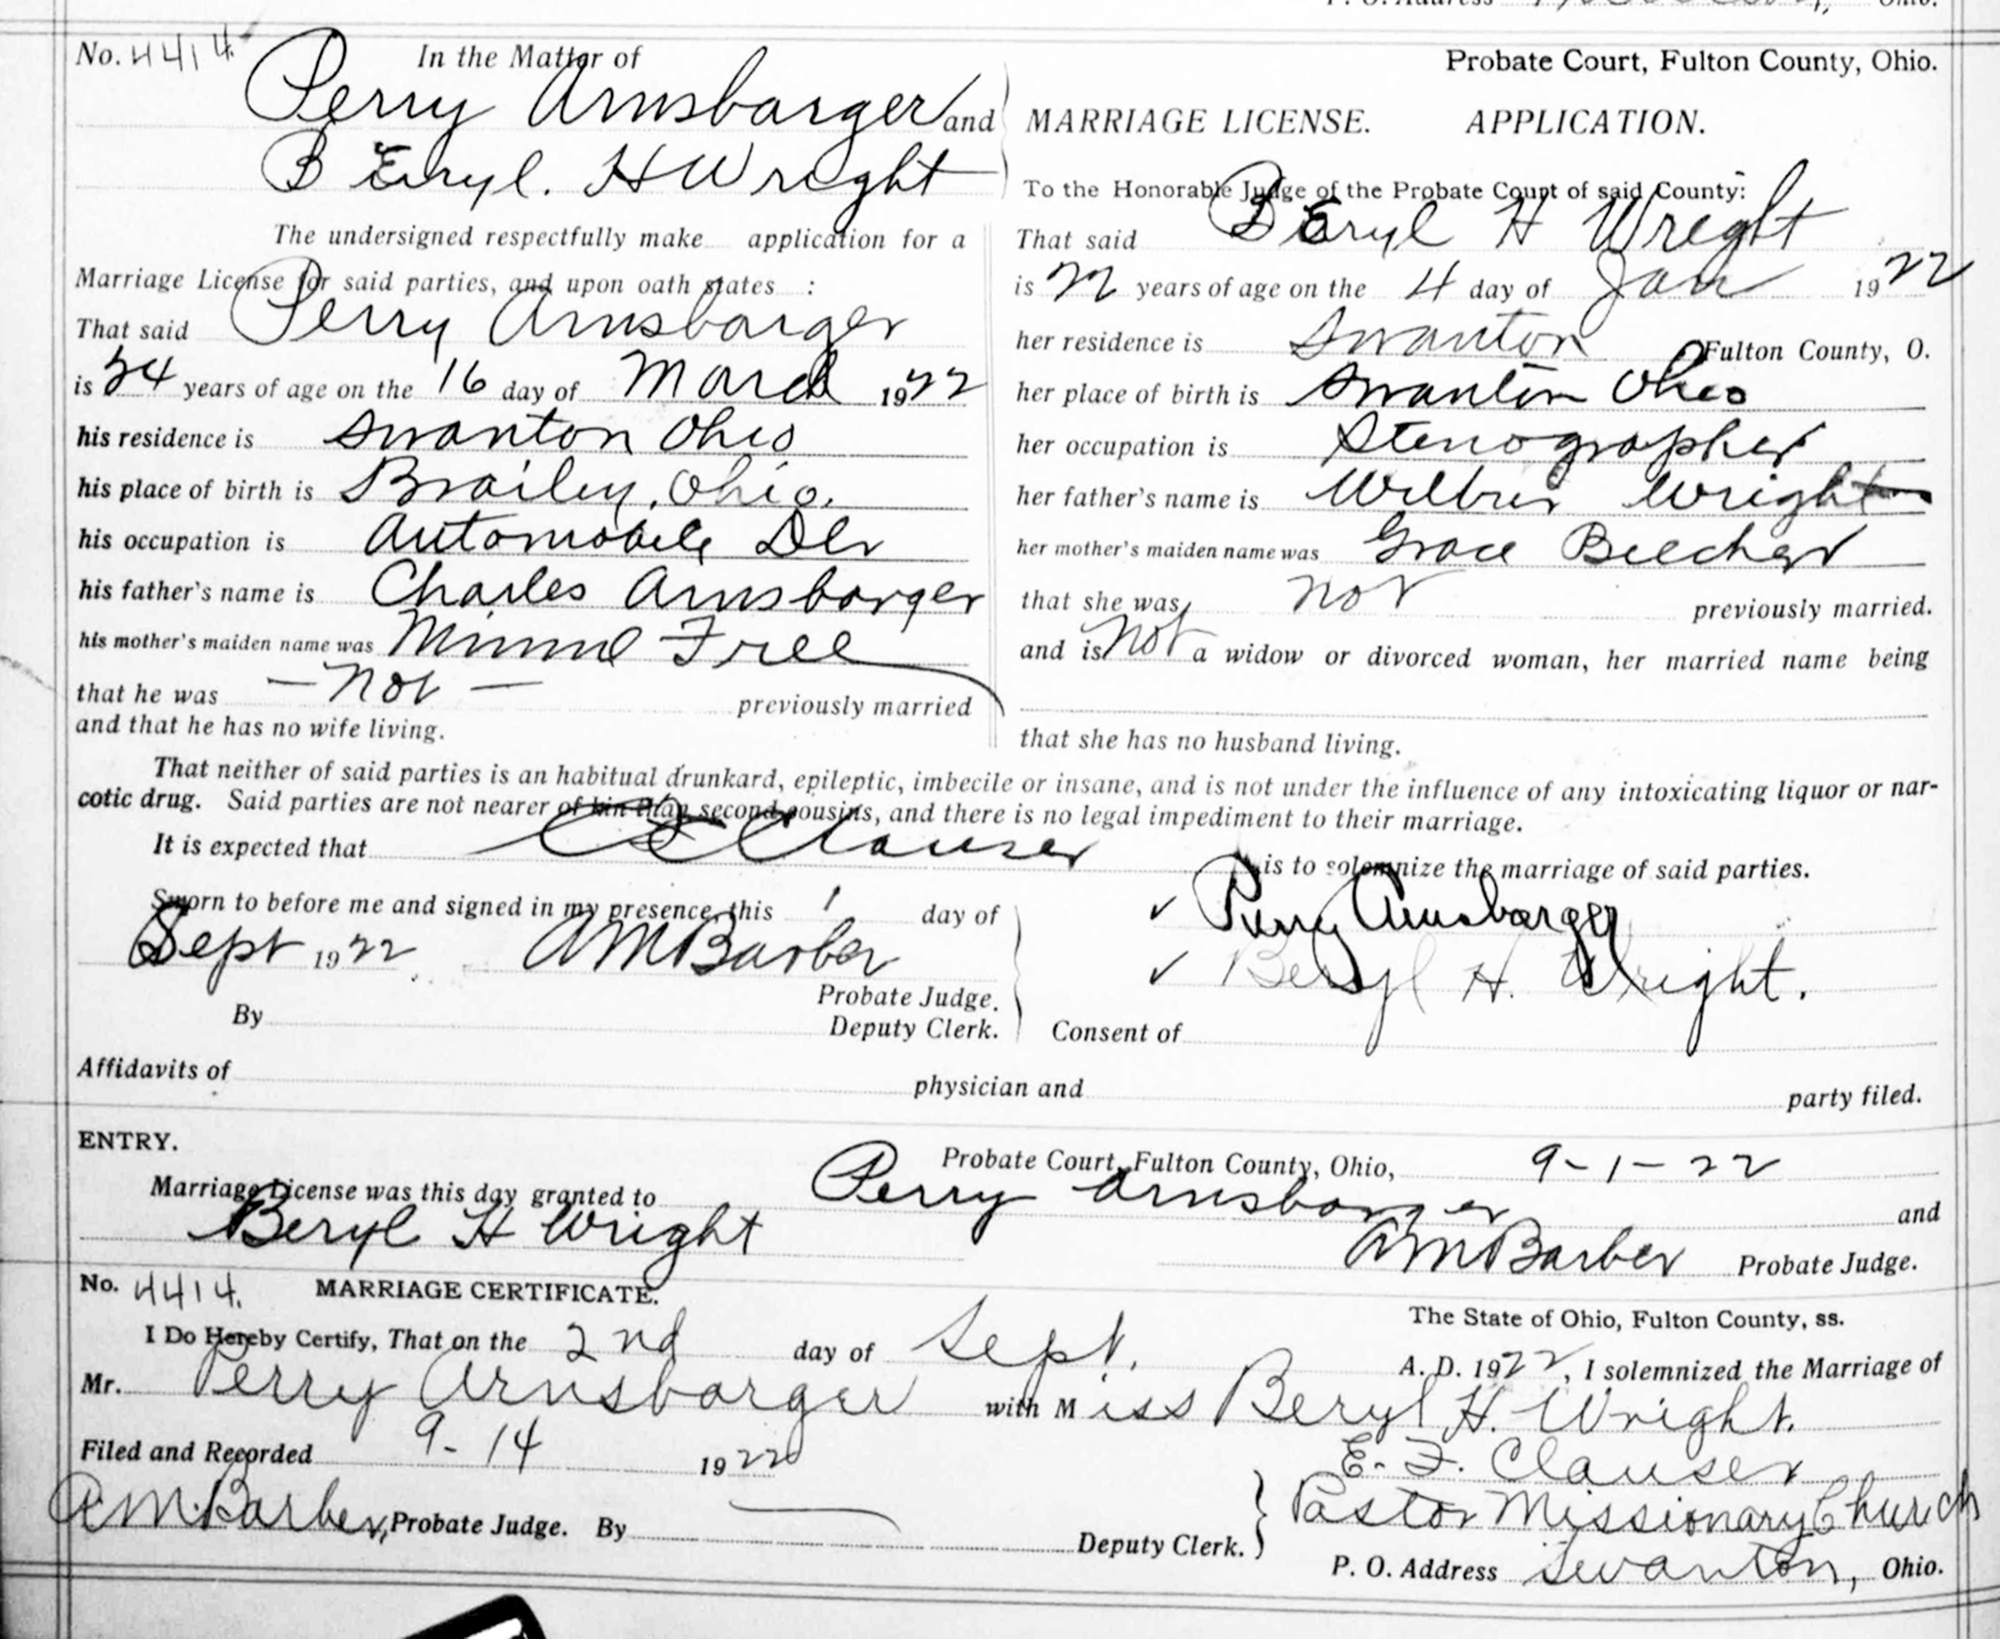 P. O. Address Ohio.
No. 4414. In the Matter of
Perry Arnsbarger and
Beryl. H Wright
The undersigned respectfully make application for a
Marriage License for said parties, and upon oath states :
That said Perry Arnsbarger
is 24 years of age on the 16 day of March 1922
his residence is Swanton Ohio
his place of birth is Brailey, Ohio.
his occupation is Automobile Dlr
his father's name is Charles Arnsbarger
his mother's maiden name was Minnie Free
that he was — not — previously married
and that he has no wife living.
Probate Court, Fulton County, Ohio.
MARRIAGE LICENSE. APPLICATION.
To the Honorable Judge of the Probate Court of said County:
That said Beryl H Wright
is 22 years of age on the 4 day of Jan 1922
her residence is Swanton Fulton County, O.
her place of birth is Swanton Ohio
her occupation is Stenographer
her father's name is Wilbur Wright
her mother's maiden name was Grace Beecher
that she was not previously married.
and is not a widow or divorced woman, her married name being
that she has no husband living.
That neither of said parties is an habitual drunkard, epileptic, imbecile or insane, and is not under the influence of any intoxicating liquor or nar-
cotic drug. Said parties are not nearer of kin than second cousins, and there is no legal impediment to their marriage.
It is expected that Clauser is to solemnize the marriage of said parties.
Sworn to before me and signed in my presence, this 1 day of
Sept 1922 A M Barber
Probate Judge.
By Deputy Clerk.
✓ Perry Arnsbarger
✓ Beryl H. Wright.
Consent of
Affidavits of physician and party filed.
ENTRY. Probate Court, Fulton County, Ohio, 9-1-22
Marriage License was this day granted to Perry Arnsbarger and
Beryl H Wright A M Barber Probate Judge.
No. 4414. MARRIAGE CERTIFICATE. The State of Ohio, Fulton County, ss.
I Do Hereby Certify, That on the 2nd day of Sept. A. D. 1922, I solemnized the Marriage of
Mr. Perry Arnsbarger with Miss Beryl H. Wright.
Filed and Recorded 9-14 1922 E. F. Clauser
A M Barber, Probate Judge. By Deputy Clerk. Pastor Missionary Church
P. O. Address Swanton, Ohio.